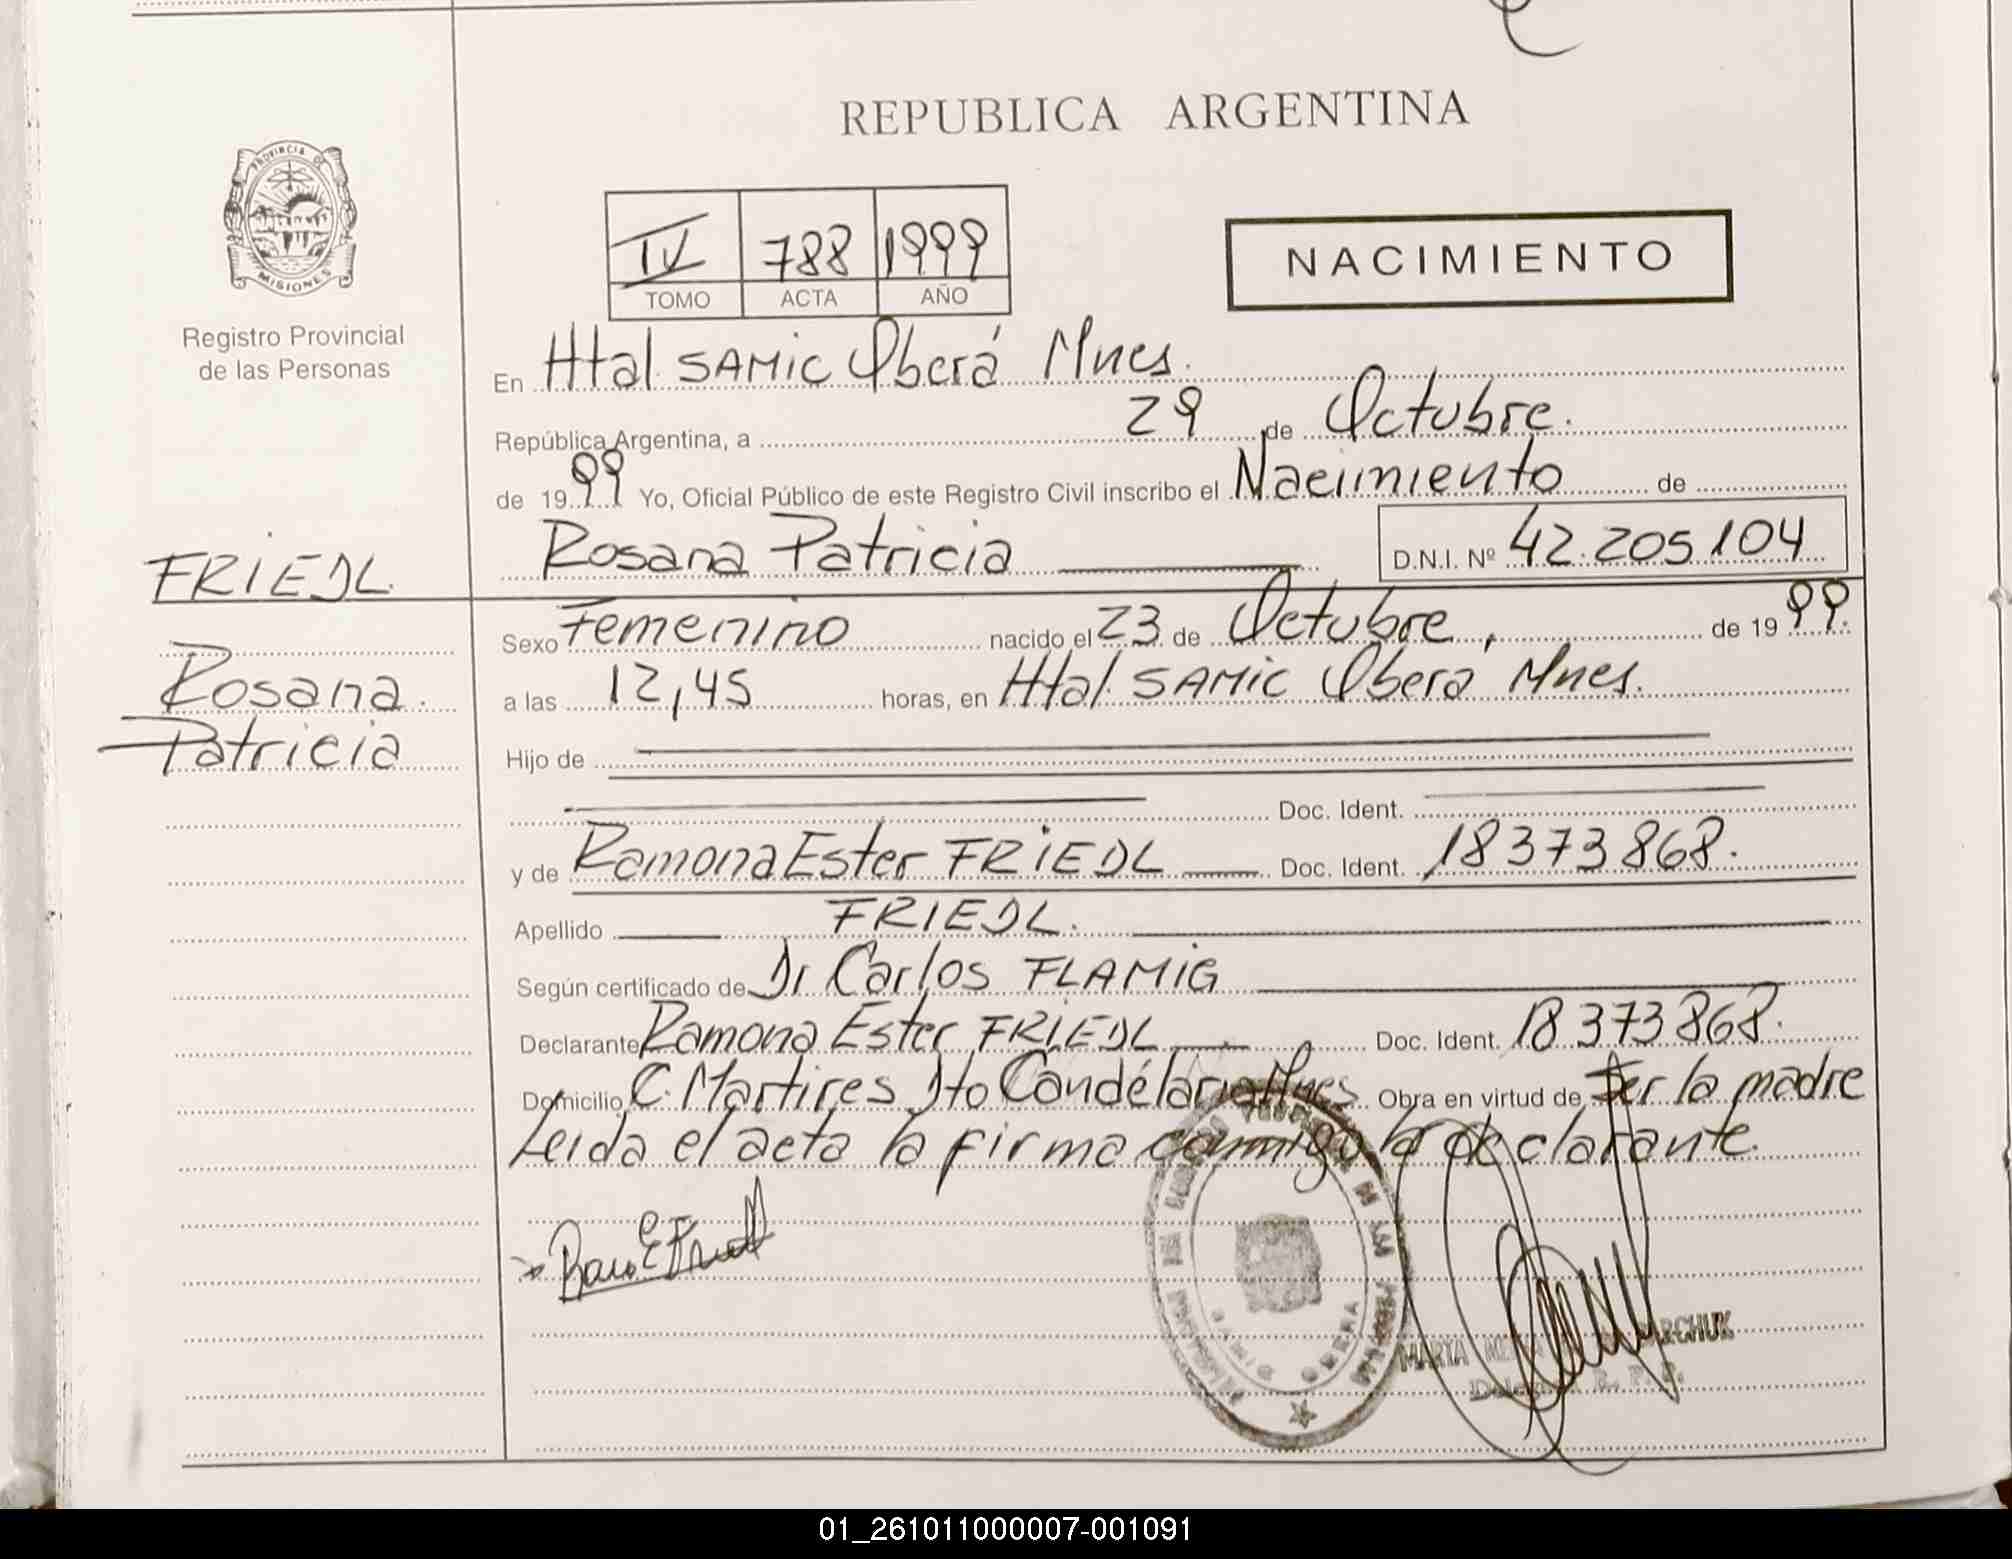 REPUBLICA ARGENTINA
PROVINCIA DE
MISIONES
Registro Provincial
de las Personas
IV 788 1999
TOMO ACTA AÑO
NACIMIENTO
En Htal. SAMIC Oberá Mnes.
República Argentina, a 29 de Octubre.
de 1999 Yo, Oficial Público de este Registro Civil inscribo el Nacimiento de
Rosana Patricia D.N.I. Nº 42.205.104
FRIEDL.
Rosana.
Patricia
Sexo Femenino nacido el 23 de Octubre, de 1999.
a las 12,45 horas, en Htal. SAMIC Oberá Mnes.
Hijo de
Doc. Ident.
y de Ramona Ester FRIEDL Doc. Ident. 18373868.
Apellido FRIEDL.
Según certificado de Dr Carlos FLAMIG
Declarante Ramona Ester FRIEDL Doc. Ident. 18373868.
Domicilio C. Martires Dto Candelaria Mnes. Obra en virtud de Ser la madre
Leida el acta la firma conmigo la declarante.
OBERA
MARTA
01_261011000007-001091